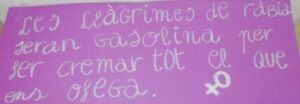 Les llàgrimes de ràbia
seran gasolina per
fer cremar tot el que
ens ofega.